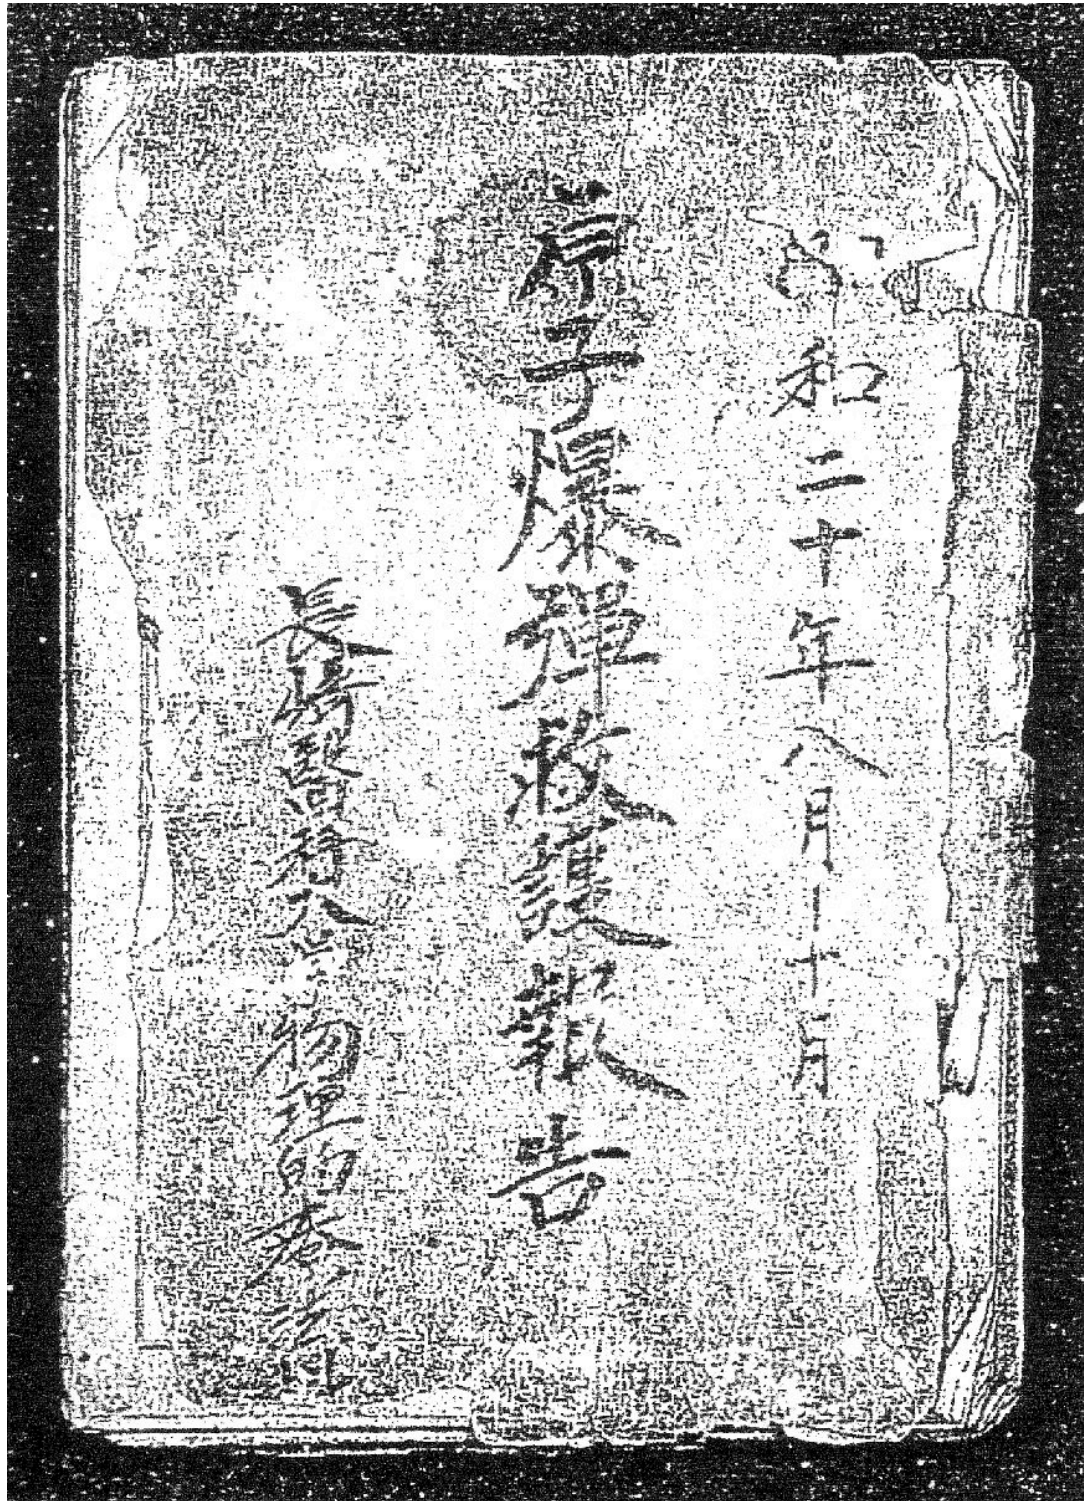 昭和二十年八月ー十月
原子爆彈救護報告
長崎醫科大学物理的療法科